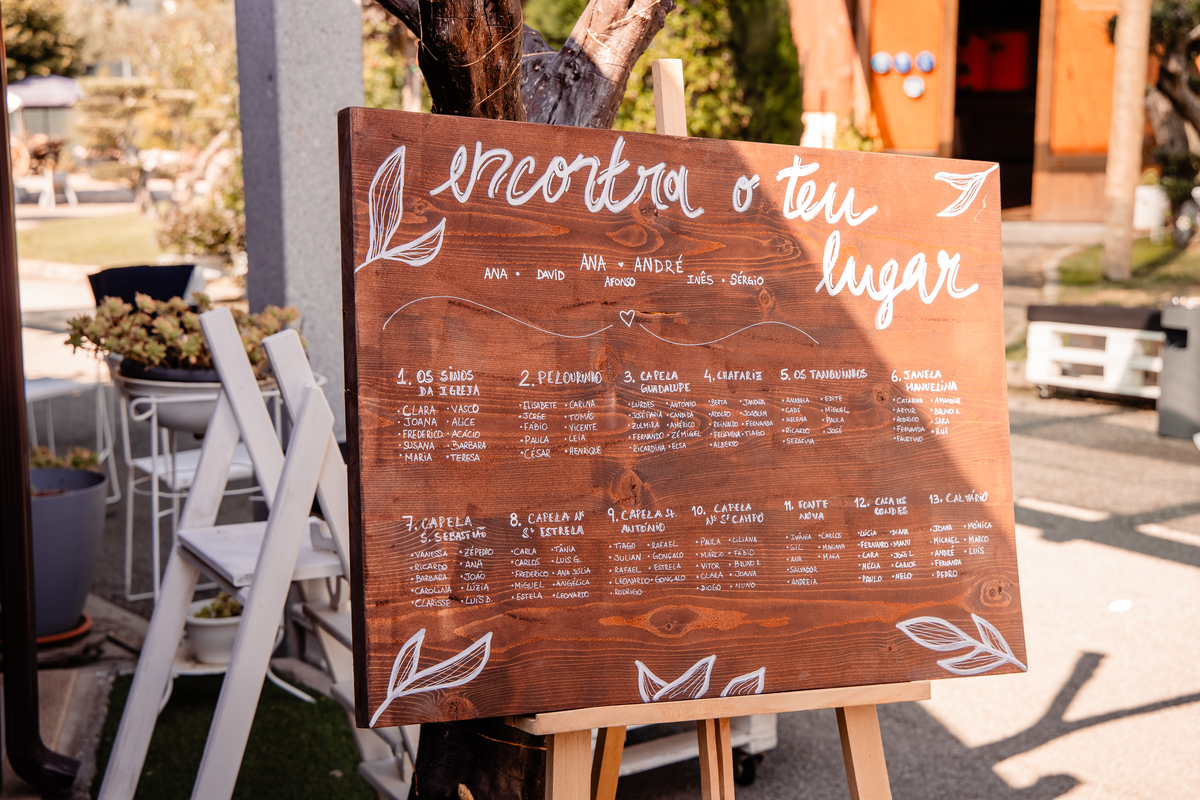 encontra o teu
lugar
ANA ♥ ANDRÉ
ANA • DAVID AFONSO INÊS • SÉRGIO
1. OS SINOS
DA IGREJA
• CLARA • VASCO
• JOANA • ALICE
• FREDERICO • ACÁCIO
• SUSANA • BARBARA
• MARIA • TERESA
2. PELOURINHO
• ELISABETE • CARINA
• JORGE • TOMÁS
• FÁBIO • VICENTE
• PAULA • LEIA
• CÉSAR • HENRIQUE
3. CAPELA
GUADALUPE
• LURDES • ANTONIO
• JOSÉ MARIA • CANDIDA
• ZULMIRA • AMÉRICO
• FERNANDO • ZÉ MIGUEL
• RICARDINA • ELSA
4. CHAFARIZ
• BERTA • JANDIRA
• ADOLFO • JOAQUIM
• REINALDO • FERNANDA
• FELISMINA • TIAGO
• ALBERTO
5. OS TANQUINHOS
• ANABELA • EDITE
• CABÉ • MIGUEL
• HELENA • PAULA
• RICARDO • JOSÉ
• SERAFINA
6. JANELA
MANUELINA
• CATARINA
• ARTUR • BRUNO R.
• RODRIGO • SARA
• FERNANDO • RUI
• FAUSTINO
7. CAPELA
S. SEBASTIÃO
• VANESSA • ZÉ PEDRO
• RICARDO • ANA
• BARBARA • JOÃO
• CAROLINA • LUÍZA
• CLARISSE • LUÍS D.
8. CAPELA Nª
Sª ESTRELA
• CARLA • TANIA
• CARLOS • LUIS G.
• FREDERICO • ANA JÚLIA
• MIGUEL • ANGÉLICA
• ESTELA • LEONARTO
9. CAPELA Sº.
ANTÓNIO
• TIAGO • RAFAEL
• JULIAN • GONÇALO
• RAFAEL • ESTRELA
• LEONARDO • GONÇALO
• RODRIGO
10. CAPELA
Nª Sª CAMPO
• PAULA • LILIANA
• MÁRCIO • FABIO
• VITOR • BRUNO R.
• CLARA • JOANA
• DIOGO • NUNO
11. FONTE
NOVA
• IVÂNIA • CARLOS
• GIL • MARIANA
• ANA • MARIA
• SALVADOR
• ANDREIA
12. CASA DOS
CONDES
• LÚCIA • DIANA
• FERNANDO • MANU
• CARA • JOSÉ L.
• HÉLIA • CARLOS
• PAULO • NELO
13. CALVÁRIO
• JOANA • MÓNICA
• MICHAEL • MARCO
• ANDRÉ • LUÍS
• FERNANDA
• PEDRO